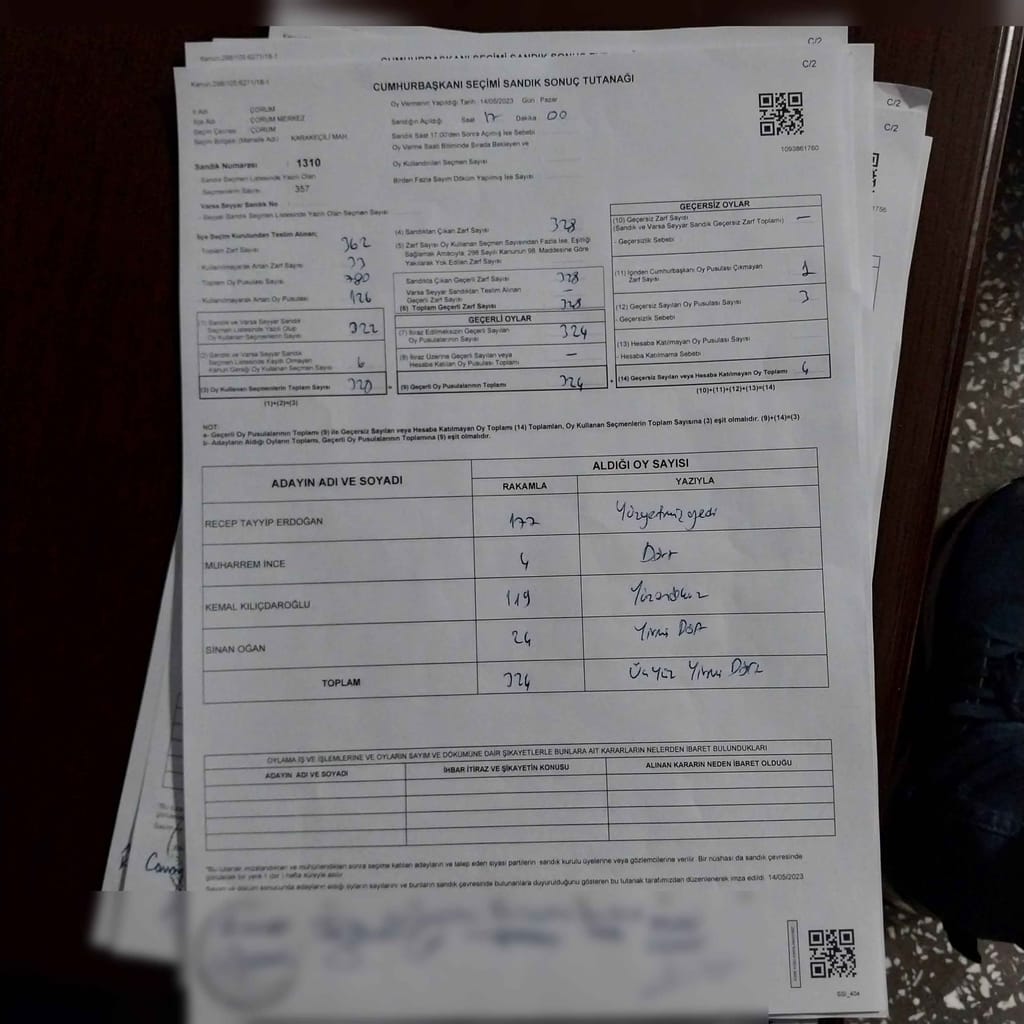 C/2
C/2
C/2
C/2
Kanun:298/105:6271/18-1
CUMHURBAŞKANI SEÇİMİ SANDIK SONUÇ TUTANAĞI
İl Adı : ÇORUM
İlçe Adı : ÇORUM MERKEZ
Seçim Çevresi : ÇORUM
Seçim Bölgesi (Mahalle Adı) : KARAKEÇİLİ MAH.
Sandık Numarası : 1310
Sandık Seçmen Listesinde Yazılı Olan
Seçmenlerin Sayısı : 357
Varsa Seyyar Sandık No
- Seyyar Sandık Seçmen Listesinde Yazılı Olan Seçmen Sayısı
Oy Vermenin Yapıldığı Tarih : 14/05/2023 Gün : Pazar
Sandığın Açıldığı Saat 17 Dakika 00
Sandık Saat 17.00'den Sonra Açılmış İse Sebebi
Oy Verme Saati Bitiminde Sırada Bekleyen ve
Oy Kullandırılan Seçmen Sayısı
Birden Fazla Sayım Döküm Yapılmış İse Sayısı
1093861760
İlçe Seçim Kurulundan Teslim Alınan;
Toplam Zarf Sayısı 362
Kullanılmayarak Artan Zarf Sayısı 33
Toplam Oy Pusulası Sayısı 780
- Kullanılmayarak Artan Oy Pusulası 126
(1) Sandık ve Varsa Seyyar Sandık
Seçmen Listesinde Yazılı Olup
Oy Kullanan Seçmen Sayısı 322
(2) Sandık ve Varsa Seyyar Sandık
Seçmen Listesinde Kayıtlı Olmayan
Kanun Gereği Oy Kullanan Seçmen Sayısı 6
(3) Oy Kullanan Seçmenlerin Toplam Sayısı 328
(1)+(2)=(3)
(4) Sandıktan Çıkan Zarf Sayısı 328
(5) Zarf Sayısı Oy Kullanan Seçmen Sayısından Fazla İse, Eşitliği
Sağlamak Amacıyla, 298 Sayılı Kanunun 98. Maddesine Göre
Yakılarak Yok Edilen Zarf Sayısı
Sandıkta Çıkan Geçerli Zarf Sayısı 328
Varsa Seyyar Sandıktan Teslim Alınan
Geçerli Zarf Sayısı —
(6) Toplam Geçerli Zarf Sayısı 328
GEÇERLİ OYLAR
(7) İtiraz Edilmeksizin Geçerli Sayılan
Oy Pusulalarının Sayısı 324
(8) İtiraz Üzerine Geçerli Sayılan veya
Hesaba Katılan Oy Pusulası Toplamı —
(9) Geçerli Oy Pusulalarının Toplamı 324
GEÇERSİZ OYLAR
(10) Geçersiz Zarf Sayısı —
(Sandık ve Varsa Seyyar Sandık Geçersiz Zarf Toplamı)
- Geçersizlik Sebebi
(11) İçinden Cumhurbaşkanı Oy Pusulası Çıkmayan
Zarf Sayısı 1
(12) Geçersiz Sayılan Oy Pusulası Sayısı 3
- Geçersizlik Sebebi
(13) Hesaba Katılmayan Oy Pusulası Sayısı
- Hesaba Katılmama Sebebi
(14) Geçersiz Sayılan veya Hesaba Katılmayan Oy Toplamı 4
(10)+(11)+(12)+(13)=(14)
NOT:
a- Geçerli Oy Pusulalarının Toplamı (9) ile Geçersiz Sayılan veya Hesaba Katılmayan Oy Toplamı (14) Toplamları, Oy Kullanan Seçmenlerin Toplam Sayısına (3) eşit olmalıdır. (9)+(14)=(3)
b- Adayların Aldığı Oyların Toplamı, Geçerli Oy Pusulalarının Toplamına (9) eşit olmalıdır.
ADAYIN ADI VE SOYADI ALDIĞI OY SAYISI
RAKAMLA YAZIYLA
RECEP TAYYİP ERDOĞAN 177 Yüzyetmişyedi
MUHARREM İNCE 4 Dört
KEMAL KILIÇDAROĞLU 119 Yüzondokuz
SİNAN OĞAN 24 Yirmi Dört
TOPLAM 324 Üçyüz Yirmi Dört
OYLAMA İŞ VE İŞLEMLERİNE VE OYLARIN SAYIM VE DÖKÜMÜNE DAİR ŞİKAYETLERLE BUNLARA AİT KARARLARIN NELERDEN İBARET BULUNDUKLARI
ADAYIN ADI VE SOYADI İHBAR İTİRAZ VE ŞİKAYETİN KONUSU ALINAN KARARIN NEDEN İBARET OLDUĞU
*Bu tutanak imzalandıktan ve mühürlendikten sonra seçime katılan adayların ve talep eden siyasi partilerin sandık kurulu üyelerine veya gözlemcilerine verilir. Bir nüshası da sandık çevresinde
görülebilir bir yere 1 (bir) hafta süreyle asılır.
Sayım ve döküm sonucunda adayların aldığı oyların sayılarını ve bunların sandık çevresinde bulunanlara duyurulduğunu gösteren bu tutanak tarafımızdan düzenlenerek imza edildi. 14/05/2023
SSI_404